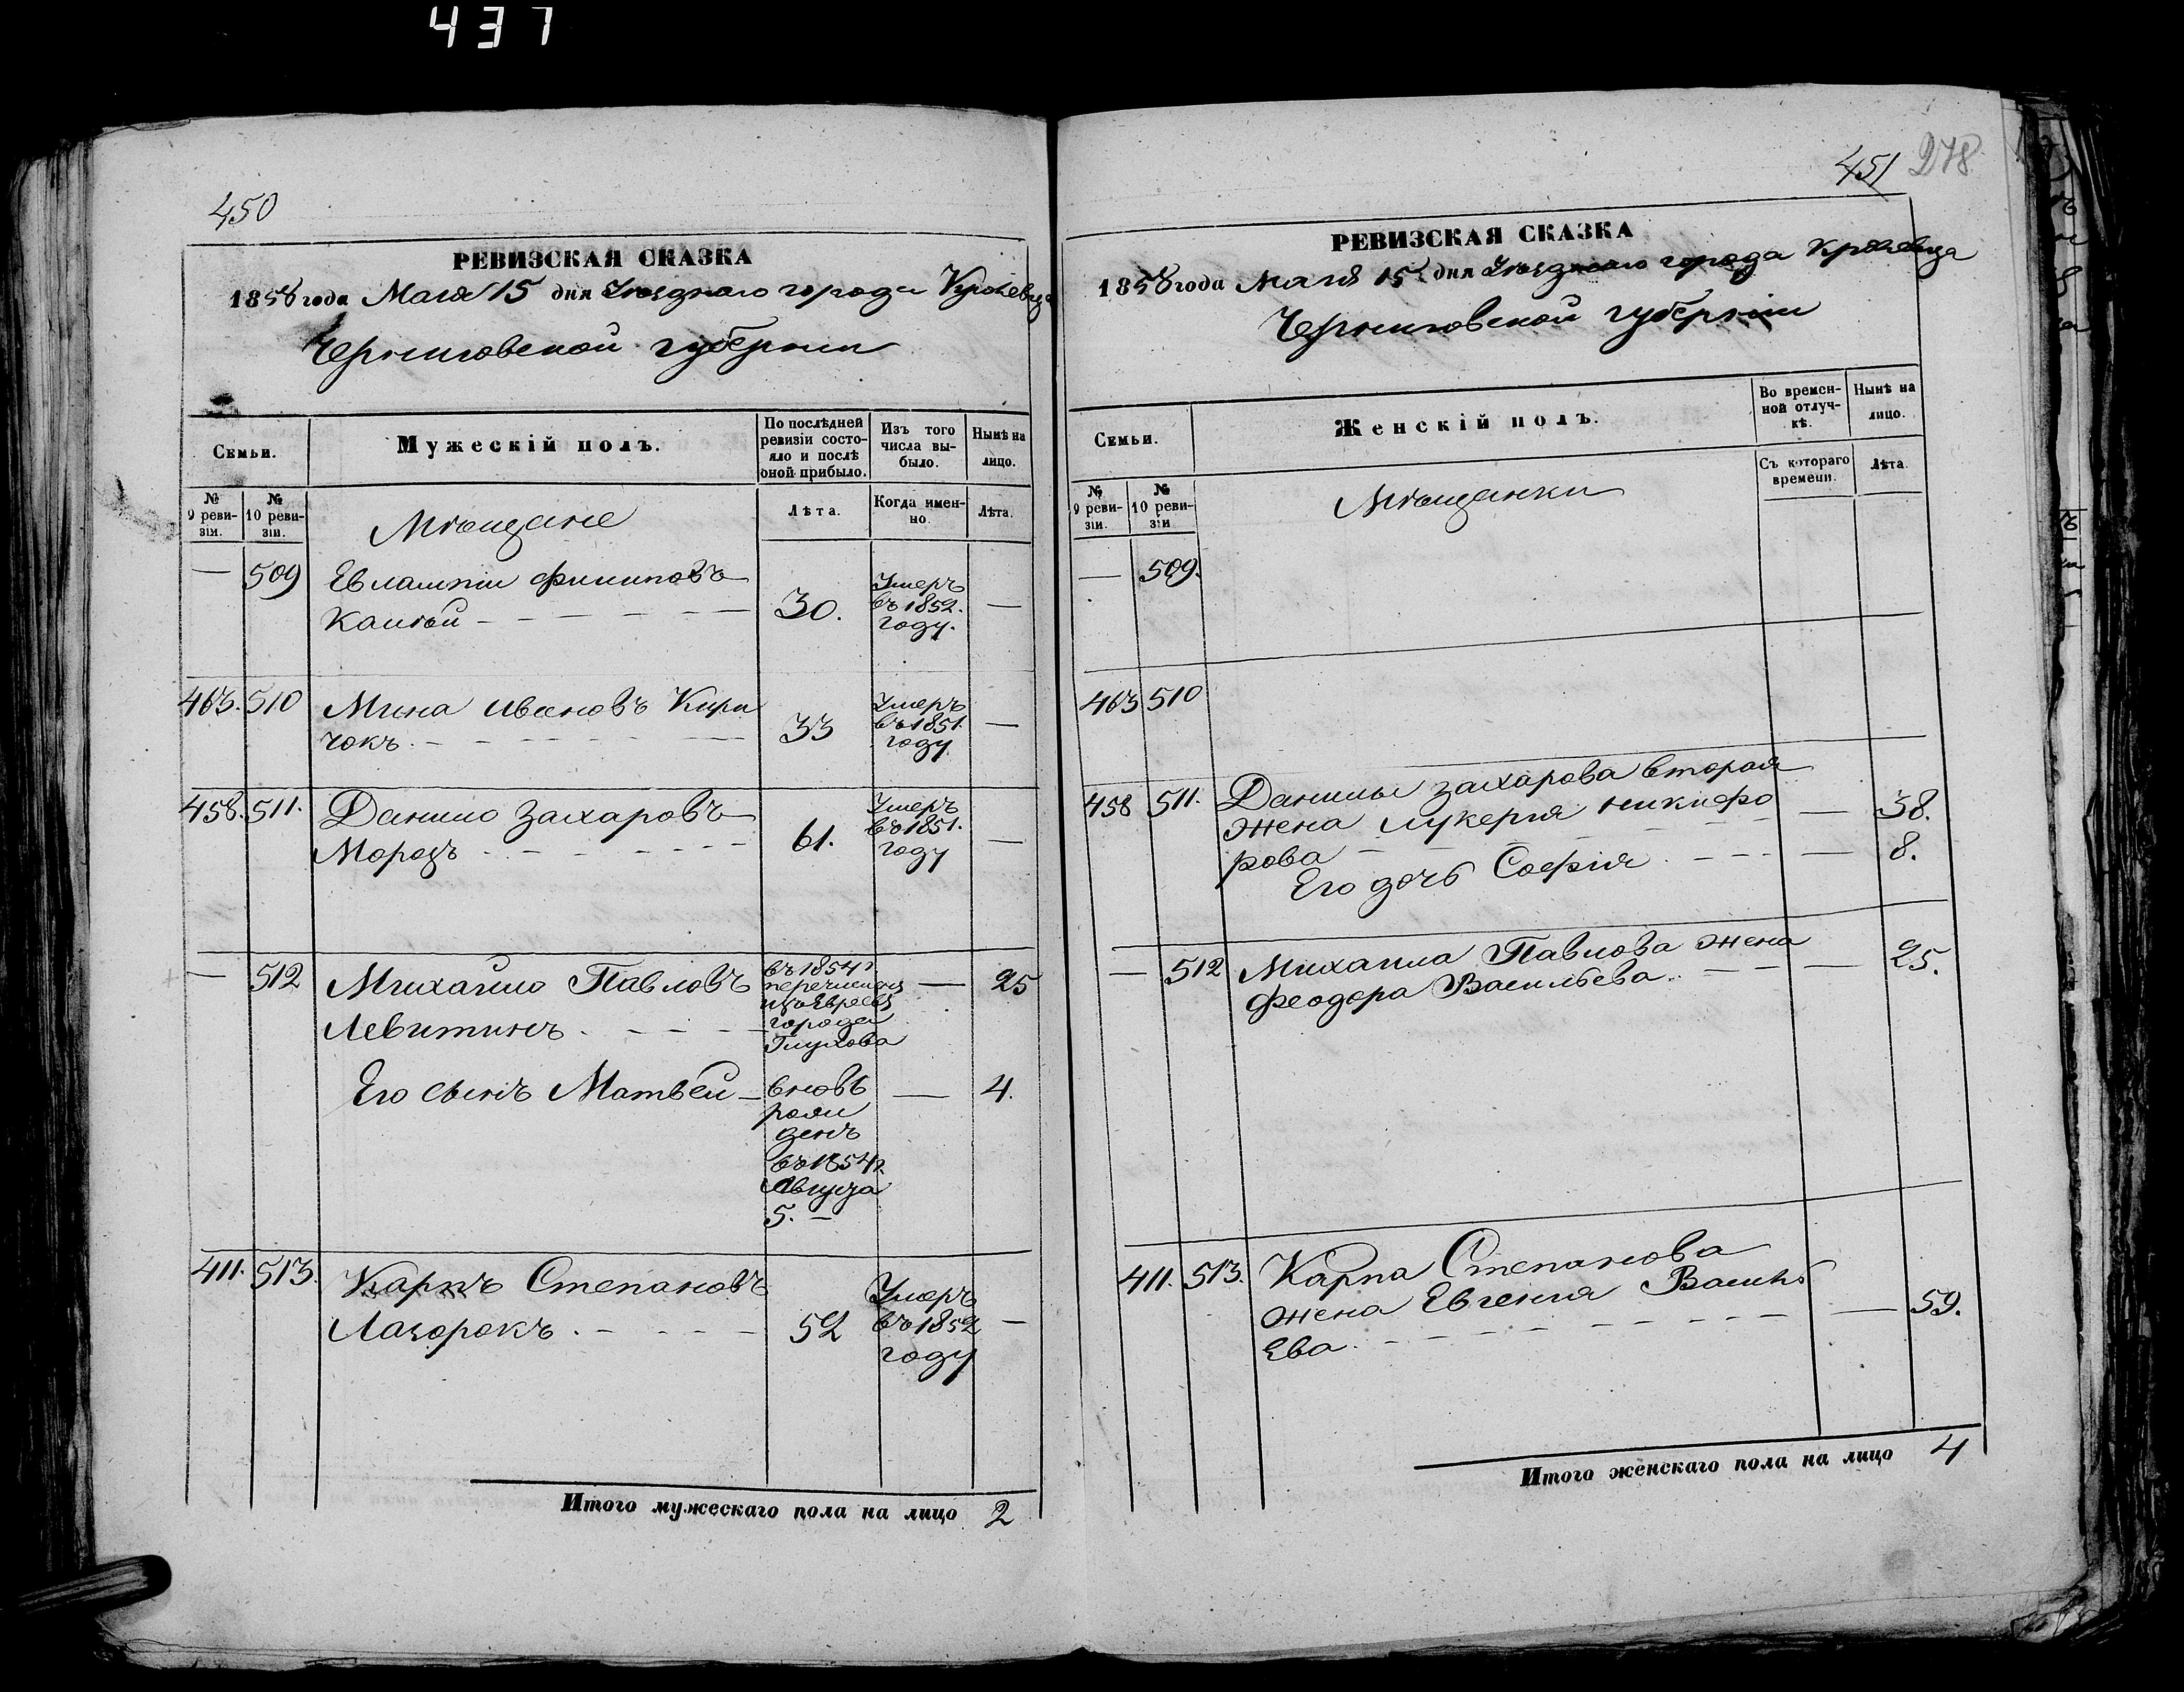 437
450
РЕВИЗСКАЯ СКАЗКА
1858 года Мая 15 дня Уѣзднаго города Кролевца
Черниговской губерніи
Семьи.
Мужескій полъ.
По послѣдней ревизіи состояло и послѣ оной прибыло.
Изъ того числа выбыло.
Нынѣ на лицо.
№ 9 ревизіи.
№ 10 ревизіи.
Мѣщане
Лѣта.
Когда именно.
Лѣта.
— 509 Евлампій Филиповъ
30. Умеръ въ 1852. году. —
463. 510 Мина Ивановъ Кири
чокъ. 33 Умеръ въ 1851. году —
458. 511. Данило Захаровъ
Морозъ 61. Умеръ въ 1851. году —
— 512 Михайло Павловъ
Левитинъ.
въ 1854 г
перечислен
изъ Евреевъ
города
Глухова
— 25
Его сынъ Матвей
вновь
рожи
денъ
въ 1854 г.
Августа
5. —
— 4.
411. 513. Карпъ Степановъ
Лазорокъ. 52 Умеръ въ 1852 году —
Итого мужескаго пола на лицо 2
451 278
РЕВИЗСКАЯ СКАЗКА
1858 года Мая 15 дня Уѣзднаго города Кролевца
Черниговской губерніи
Семьи.
Женскій полъ.
Во временной отлучкѣ.
Нынѣ на лицо.
№ 9 ревизіи.
№ 10 ревизіи
Мѣщанки
Съ котораго времени.
Лѣта.
— 509.
463 510
458 511. Данилы Захарова вторая
жена Лукерія Никифо
рова — 38.
Его дочь Софія — 8.
— 512 Михаила Павлова жена
Феодора Васильева. — 25.
411. 513. Карпа Степанова
жена Евгенія Василь
ева. — 59.
Итого женскаго пола на лицо 4